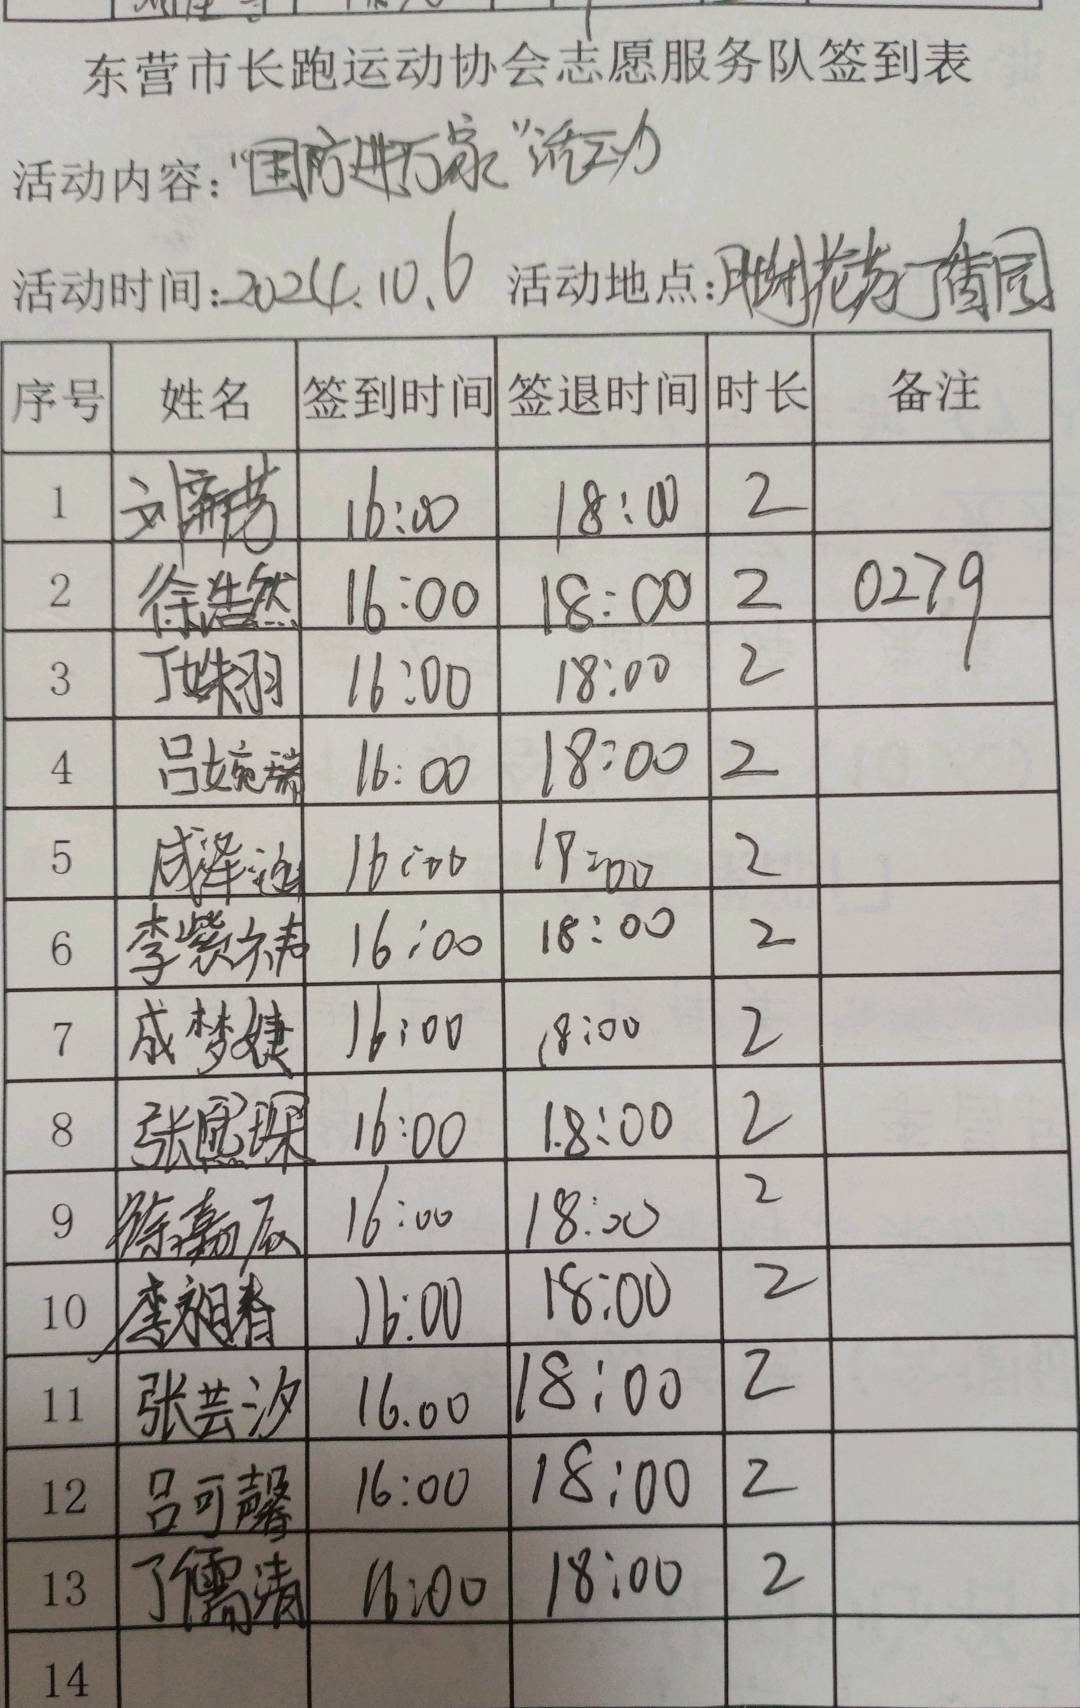 东营市长跑运动协会志愿服务队签到表
活动内容："国防进万家"活动
活动时间：2024.10.6 活动地点：胜利花苑丁香园
序号 姓名 签到时间 签退时间 时长 备注
1 刘新芳 16:00 18:00 2
2 徐浩然 16:00 18:00 2 0279
3 丁姝羽 16:00 18:00 2
4 吕婉瑞 16:00 18:00 2
5 咸泽 16:00 18:00 2
6 李紫祎 16:00 18:00 2
7 成梦婕 16:00 18:00 2
8 张熙琛 16:00 18:00 2
9 徐嘉辰 16:00 18:00 2
10 李 春 16:00 18:00 2
11 张芸汐 16.00 18:00 2
12 吕可馨 16:00 18:00 2
13 丁儒清 16:00 18:00 2
14